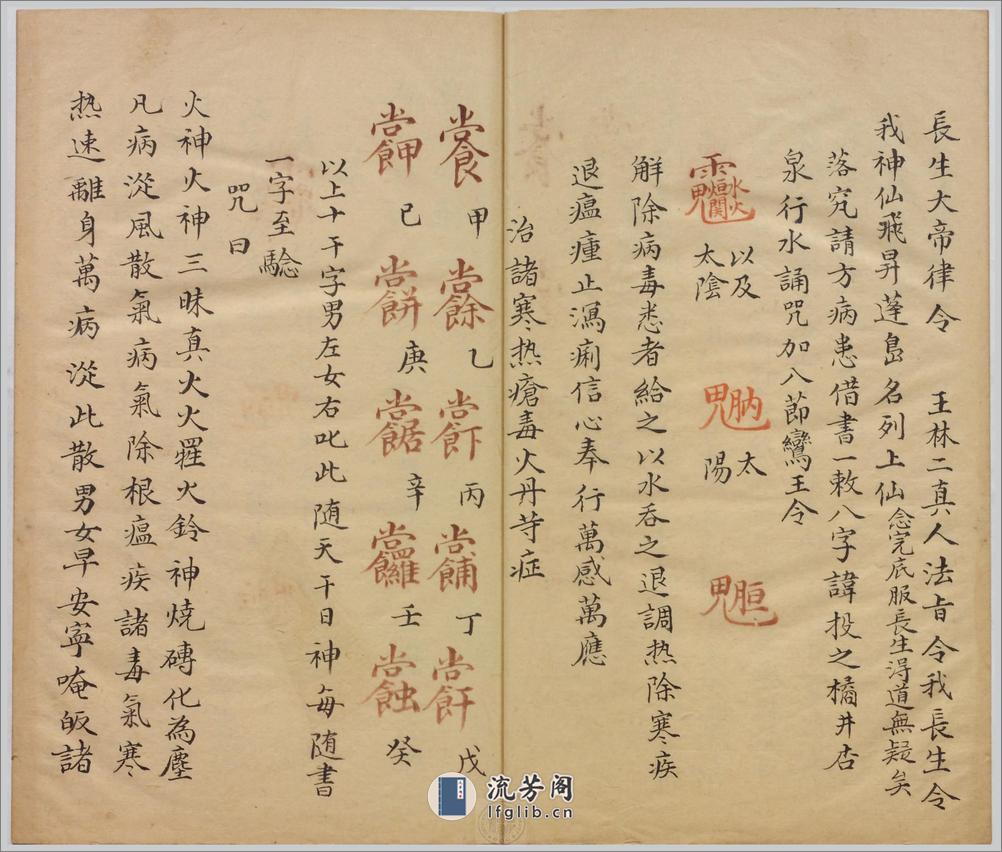 長生大帝律令　王林二真人法旨令我長生令
我神仙飛昇蓬島名列上仙念完底服長生淂道無疑矣
落究請方病患借書一敕八字諱投之橘井杏
泉行水誦咒加八節鸞王令
以及
太陰
太
陽
解除病毒悉者給之以水吞之退調热除寒疾
退瘟瘇止瀉痢信心奉行萬感萬應
治諸寒热瘡毒火丹等症
甲 乙 丙 丁 戊
己 庚 辛 壬 癸
以上十干字男左女右叱此随天干日神每随書
一字至驗
咒曰
火神火神三昧真火火鈴神燒磚化為塵
凡病從風散氣病氣除根瘟疾諸毒氣寒
热速離身萬病從此散男女早安寧唵皈諸
流芳阁
lfglib.cn